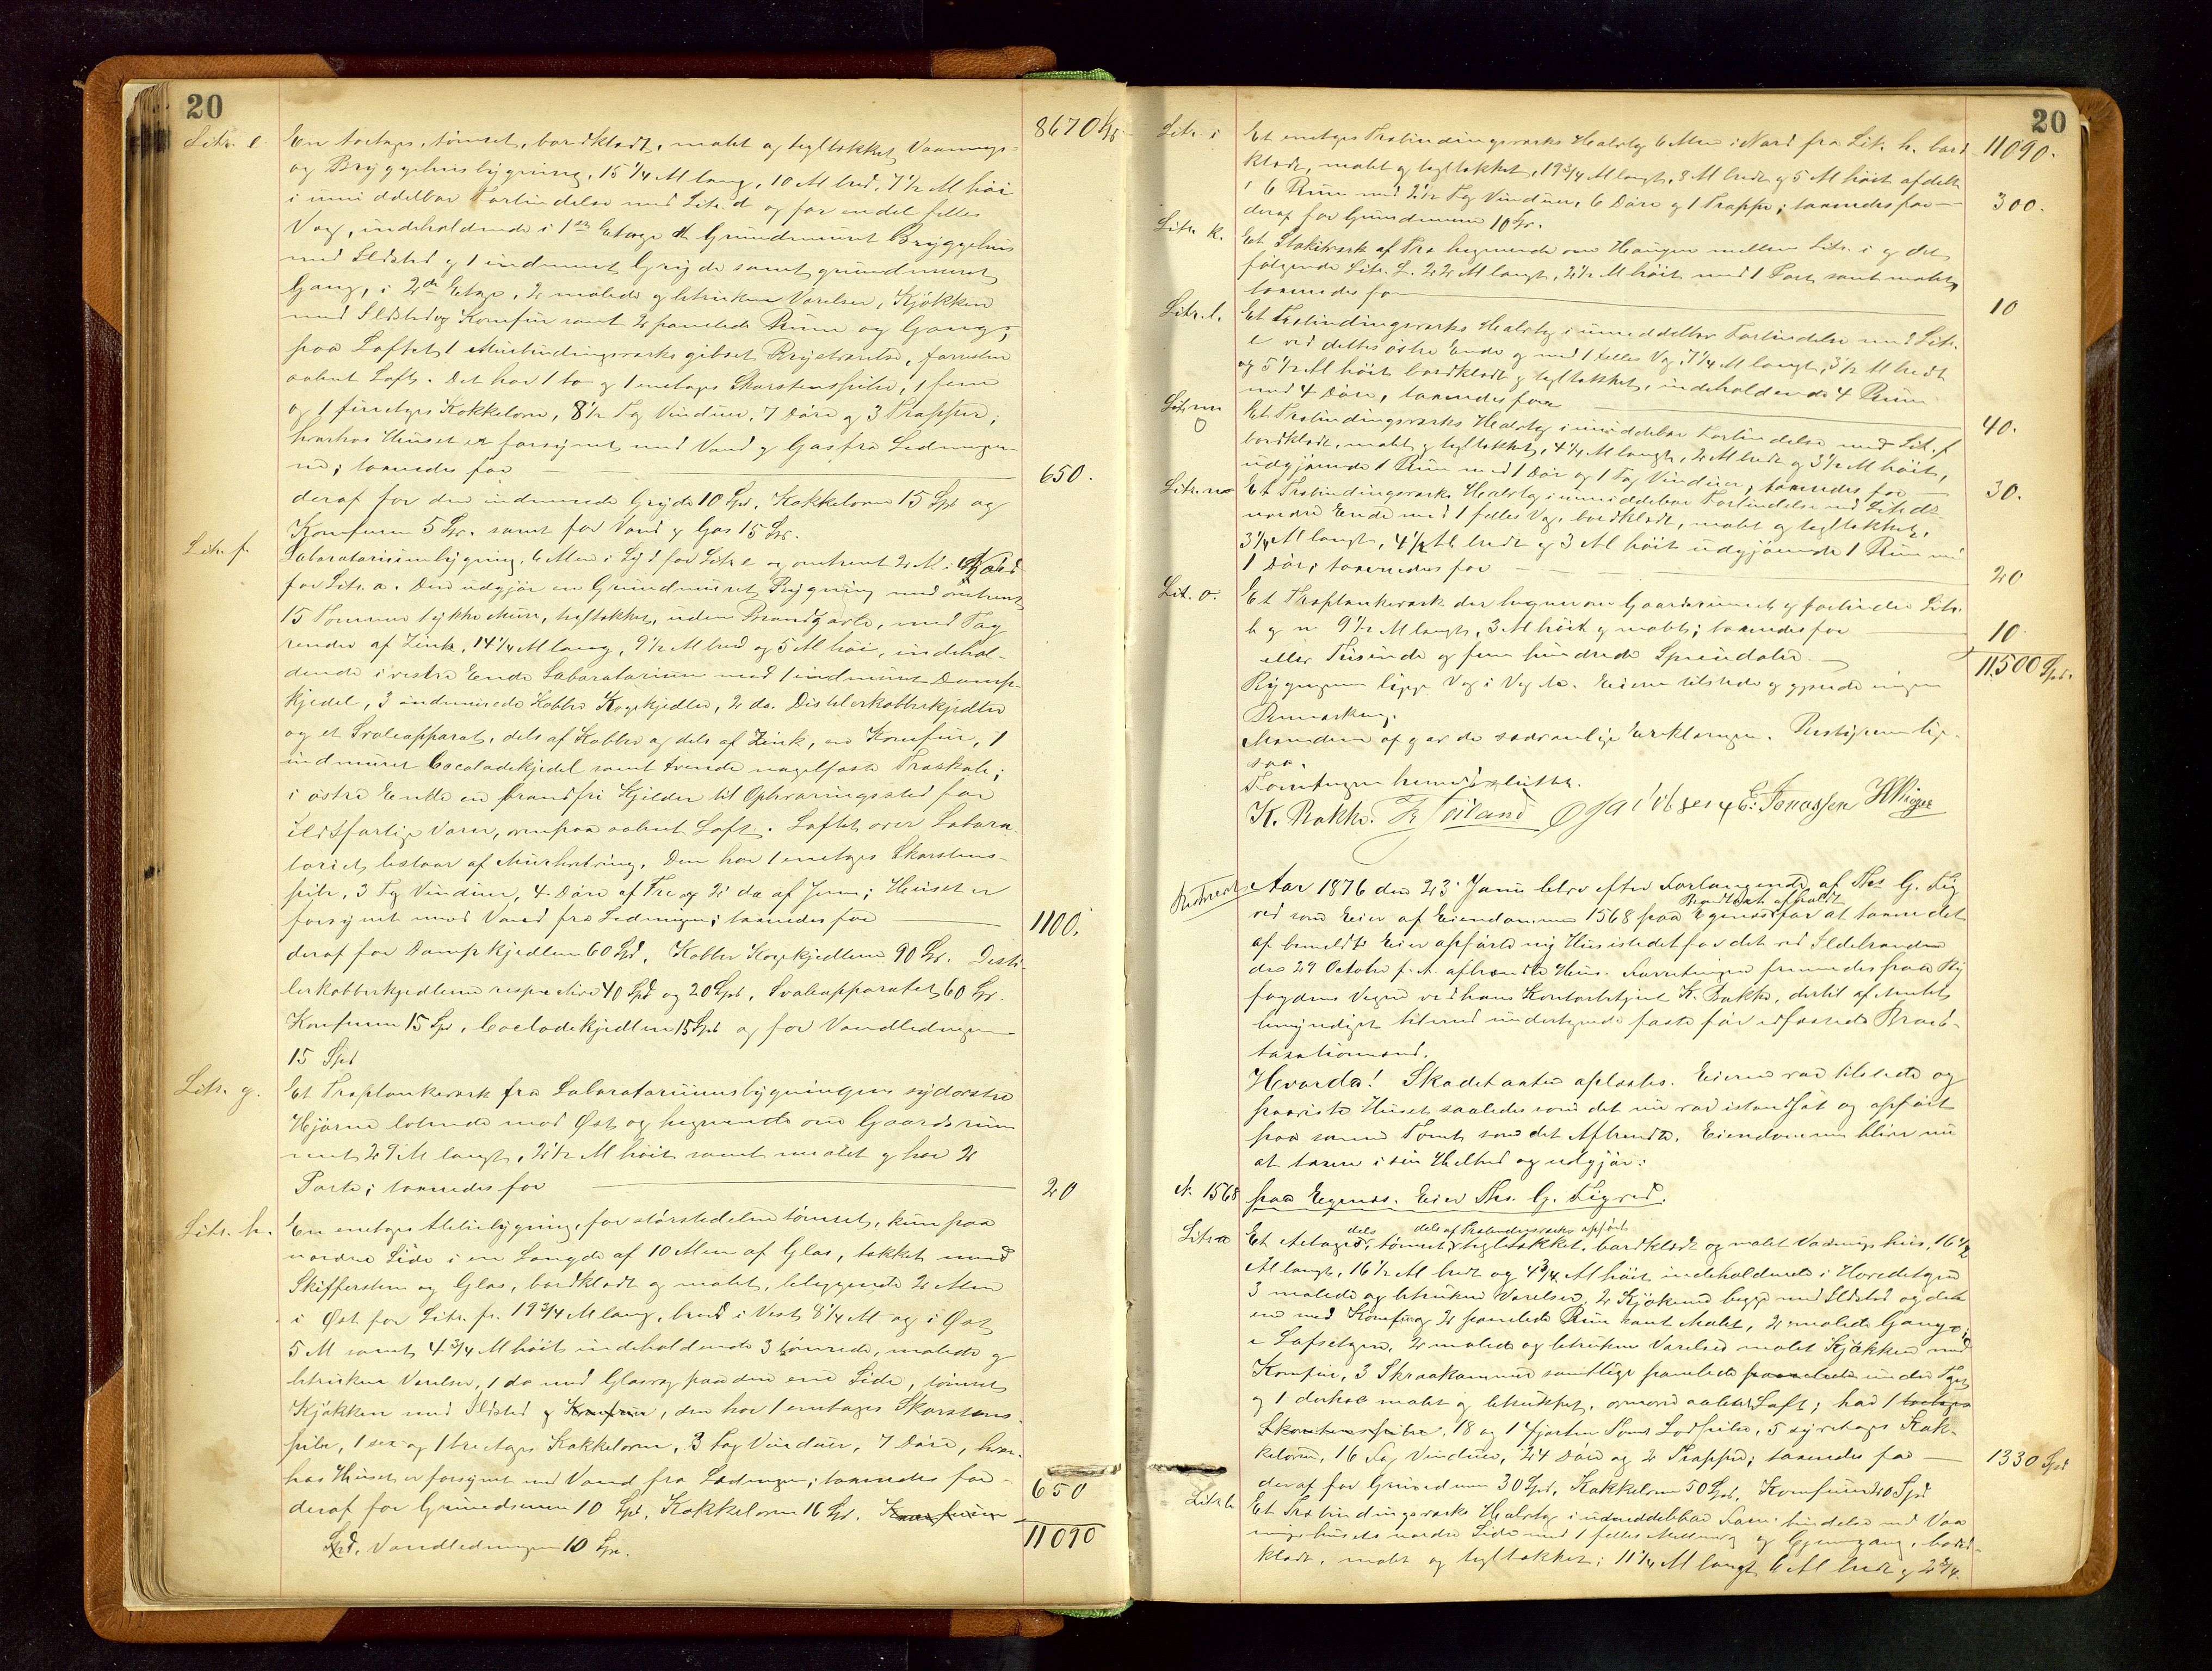 20
8670 Spd.
Litr. e. En toetages, tømret, bordklædt, malet og tegltækket Vaanings-
og Bryggehusbygning, 15 1/4 Al lang, 10 Al bred, 7 1/2 Al høi
i umiddelbar Forbindelse med Litr. d og for en del felles
Væg, indeholdende i 1ste Etage et Grundmuret Bryggehus
med Ildsted og 1 indmuret Gryde samt grundmuret
Gang, i 2den Etage, 2 malede og betrukne Værelser, Kjøkken
med Ildsted og Komfur samt 2 panelede Rum og Gang;
paa Loftet 1 Murbindingsværks gibset Rygstrørelse, foruden
aabent Loft. Det har 1 to og 1 enetages Skorstenspibe, 1 fem
og 1 firetages Kakkelovn, 8 1/2 Fag Vinduer, 7 Døre og 3 Trapper;
hvorhos Huset er forsynet med Vand og Gas fra Ledningen-
ne; taxeredes for 650.
deraf for den indmurede Gryde 10 Spd. Kakkelovne 15 Spd og
Komfuren 5 Spd. samt for Vand og Gas 15 Spd.
Litr. f. Laboratoriumbygning, 6 Alen i Syd for Litr e og omtrent 2 Al i Nord
for Litr. a. Den udgjør en Grundmuret Bygning med omtrent
15 Tommer tykke Mure, tegltækket, uden Brandgavle, med Tag
render af Zink, 14 1/4 Al lang, 9 1/2 Al bred og 5 Al høi, indehol-
dende i vestre Ende Laboratorium med 1 indmuret Damp-
kjedel, 3 indmurede Kobber Kogekjedler, 2 do. Distilerkobberkjedler
og et Svaleapparat, dels af Kobber og dels af Zink, en Komfur, 1
indmuret Cocoladekjedel samt tvende nagelfaste Træskabe;
i østre Ende en brandfri Kjelder til Opbevaringssted for
ildsfarlige Varer, ovenpaa aabent Loft. Loftet over Labora-
toriet bestaar af Murhvælving. Den har 1 enetages Skorstens-
pibe, 3 Fag Vinduer, 4 Døre af Træ og 2 do af Jern; Huset er
forsynet med Vand fra Ledningen; taxeredes for 1100.
deraf for Dampkjedlen 60 Spd, Kobber Kogekjedlerne 90 Spd. Disti-
lerkobberkjedlerne respective 40 Spd og 20 Spd, Svaleapparatet 60 Spd.
Komfuren 15 Spd, Cocladekjedlen 15 Spd og for Vandledningen
15 Spd
Litr. g. Et Træplankeværk fra Laboratoriumsbygningens sydøstre
Hjørne løbende mod Øst og hegnende om Gaardsrum
met 29 Al langt, 2 1/2 Al høit samt malet og har 2
Porte; taxeredes for 20
Litr. h. En enetages Atelierbygning, for størstedelen tømret, kun paa
nordre Side i en Længde af 10 Alen af Glas, tækket med
Skiffersten og Glas, bordklædt og malet, beliggende 2 Alen
i Øst for Litr. f. 19 3/4 Al lang, bred i Vest 8 1/4 Al og i Øst
5 Al samt 4 3/4 Al høit indeholdende 3 tømrede, malede og
betrukne Værelser, 1 do med Glasvæg paa den ene Side, tømret
Kjøkken med Ildsted og Komfur, den har 1 enetages Skorstens-
pibe, 1 sex og 1 treetages Kakkelovn, 3 Fag Vinduer, 7 Døre, hvor-
hos Huset er forsynet med Vand fra Ledningen; taxeredes for 650
deraf for Grundmuren 10 Spd, Kakkelovne 16 Spd. Komfuren
Spd, Vandledningen 10 Spd.
11090
20
Litr. i Et enetages Træbindingsværks Halvtag 6 Alen i Nord fra Lit. h. bord 11090.
klædt, malet og tegltækket, 19 3/4 Al langt, 8 Al bredt og 5 Al høit afdelt
i 6 Rum med 2 1/2 Fag Vinduer, 6 Døre og 1 Trappe; taxeredes for 300.
deraf for Grundmuren 10 Spd.
Litr. k. Et Stakitværk af Træ hegnende om Haugen mellem Litr. i og det
følgende Litr. L. 22 Al langt, 2 1/2 Al høit med 1 Port samt malet,
taxeredes for 10
Litr. l. Et Træbindingsværks Halvtag i umiddelbar Forbindelse med Litr.
e ved dettes østre Ende og med 1 felles Væg, 7 1/4 Al langt, 3 1/2 Al bredt
og 5 1/2 Al høit bordklædt og tegltækket, indeholdende 4 Rum
med 4 Døre, taxeredes for 40.
Litr. m Et Træbindingsværks Halvtag i umiddelbar Forbindelse med Lit. f
bordklædt, malet og tegltækket, 4 1/4 Al langt, 2 Al bredt og 3 1/2 Al høit,
udgjørende 1 Rum med 1 Dør og 1 Fag Vinduer, taxeredes for 30.
Litr. n Et Træbindingsværks Halvtag i umiddelbar Forbindelse med Litr. d's
nordre Ende med 1 felles Væg, bordklædt, malet og tegltækket,
3 1/4 Al langt, 4 1/2 Al bredt og 3 Al høit udgjørende 1 Rum med
1 Dør; taxeredes for 20
Lit. o. Et Træplankeværk der hegner om Gaardsrummet og forbinder Litr.
h og n 9 1/2 Al langt, 3 Al høit og malet; taxeredes for 10
eller Tusinde og fem hundrede Speciedaler. 11,500 Spd.
Bygningerne ligge Væg i Væg. Eieren tilstede og gjorde ingen
Bemærkning.
Mændene afgav de sædvanlige Erklæringer. Bestyreren lige-
saa.
Forretningen hermed sluttet.
K. Bakke. T. Töiland E. Jonassen
Aar 1876 den 23 Juni blev efter Forlangende af Ths G. Fig
ved som Eier af Eiendommen 1568 paa Egenæs Brandtaxt afholdt for at taxere det
af bemeldte Eier opførte ny Hus istedetfor det ved Ildebranden
den 29 October f. A. afbrændte Hus. Forretningen fremmedes paa By
fogdens Vegne ved hans Kontorbetjent K. Bakke, dertil af Amtet
bemyndiget tilligemed undertegnede faste før edfæstede Brand-
taxationsmænd.
Hvorda! Skadetaxten oplæstes. Eieren var tilstede og
paaviste Huset saaledes som det nu var istandsat og opført
paa samme Tomt som det Afbrændte. Eiendommen bliver nu
at taxere i sin Helhed og udgjør:
N. 1568 paa Egenæs. Eier Ths. G. Figved.
Litr a Et Etages dels tømret dels af Træbindingsværk opført tegltækket, bordklædt og malet Vaaningshus, 16 1/2
Al langt, 16 1/2 Al bredt og 4 3/4 Al høit indeholdende i Hovedetagen
3 malede og betrukne Værelser, 2 Kjøkkener begge med Ildsted og det
ene med Komfur og 2 panelede Rum samt Malet, 2 malede Gange;
i Loftsetagen, 2 malede og betrukne Værelser malet Kjøkken med
Komfur, 3 Skraakammere samtlige panelede panelede under Taget
og 1 derhos malet og betrukket, ovenover aabent Loft; har 1 toetages
Skorstenspibe, 18 og 1 fjorten Toms Rørpibe, 5 syvetages Kak-
kelovne, 16 Fag Vinduer, 24 Døre og 2 Trapper; taxeredes for 1330 Spd
deraf for Grundmuren 30 Spd, Kakkelovne 50 Spd, Komfurer 20 Spd
Litr b Et Træbindingsværks Halvtag i umiddelbar Forbindelse med Vaa
ningshusets nordre Side med 1 felles Mellemvæg og Gjennemgang, bord-
klædt, malet og tegltækket; 11 1/4 Al langt 6 Al bredt og 2 3/4